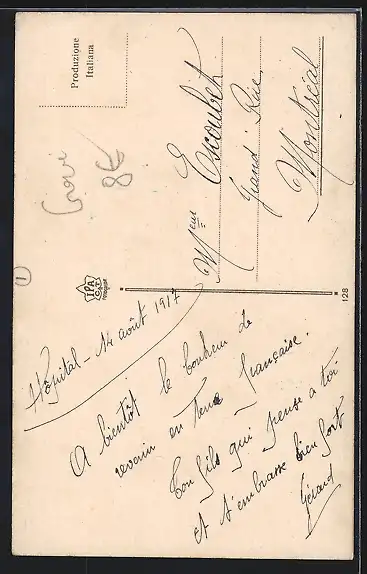 Produzione
Italiana
8€
Mme E Escoubet
Grand Rue
Montréal
1
IPA
CT
128
Hôpital - 14 août 1917
A bientôt le bonheur de
revenir en Terre française.
Ton fils qui pense a toi
et t'embrasse bien fort
Gérard